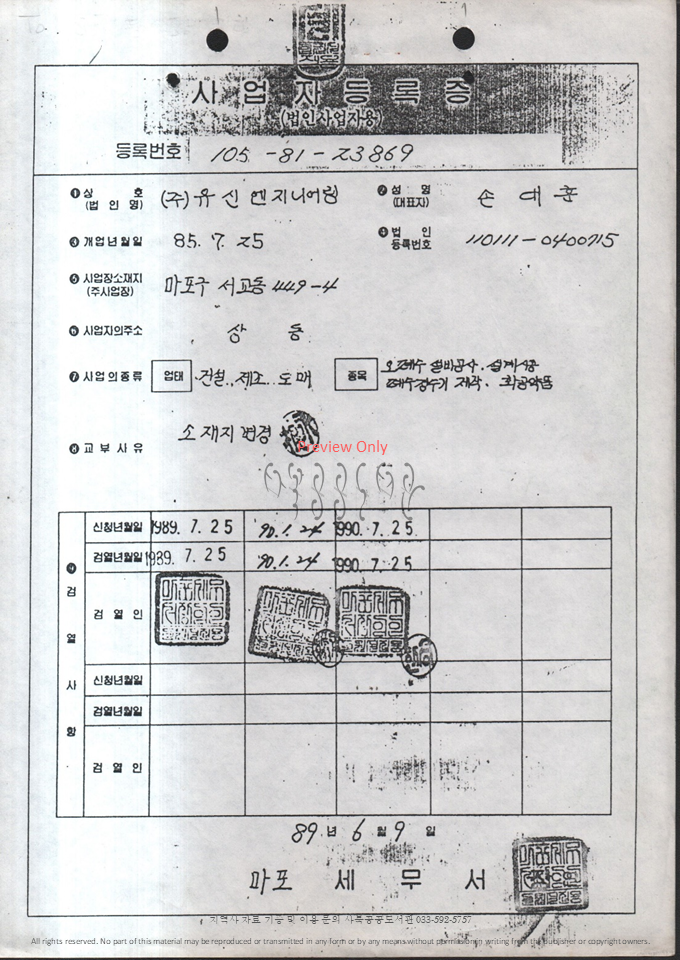 사업자등록증
(법인사업자용)
등록번호 105-81-23869
❶ 상 호 (법인명) (주)유신엔지니어링 ❷ 성명 (대표자) 손대훈
❸ 개업년월일 85. 7. 25 ❹ 법인 등록번호 110111-0400715
❺ 사업장소재지 (주사업장) 마포구 서교동 449-4
❻ 사업자의주소 상 동
❼ 사업의종류 업태 건설, 제조, 도매 종목 오폐수 설비공사. 설계시공
폐수정수기 제작. 화공약품
❽ 교부사유 소재지 변경
Preview Only
❾ 검열사항
신청년월일 1989. 7. 25 90. 1. 24 1990. 7. 25
검열년월일 1989. 7. 25 90. 1. 24 1990. 7. 25
검 열 인
신청년월일
검열년월일
검 열 인
89 년 6 월 9 일
마포 세 무 서
지역사 자료 기증 및 이용 문의 사북공공도서관 033-592-5757
All rights reserved. No part of this material may be reproduced or transmitted in any form or by any means without permission in writing from the publisher or copyright owners.